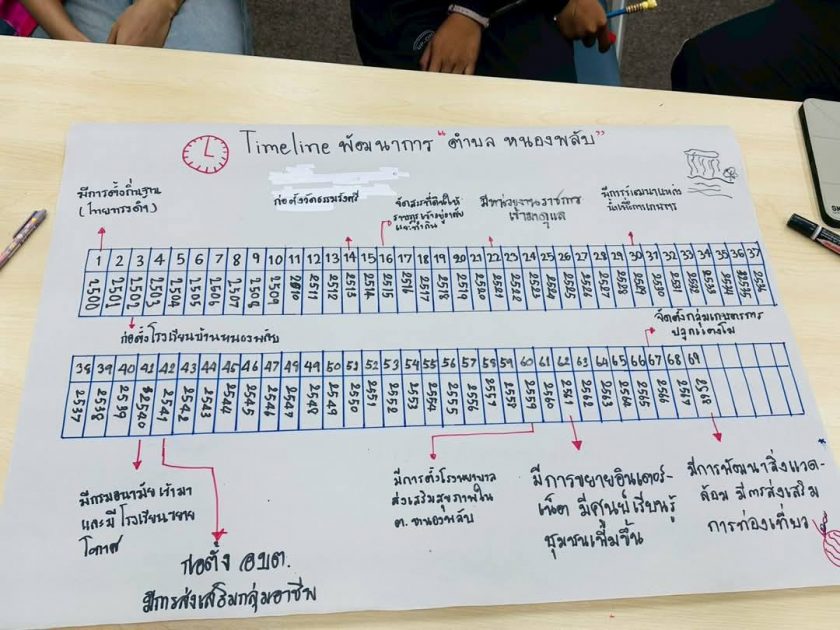 Timeline พัฒนาการ "ตำบล หนองพลับ"
มีการตั้งถิ่นฐาน
(ไทยทรงดำ)
ก่อตั้งวัดธรรมรังศรี
จัดสรรที่ดินให้
ราษฎรเข้าอยู่อาศัย
และทำกิน
มีหน่วยงานราชการ
เข้ามาดูแล
มีการพัฒนาแหล่ง
น้ำเพื่อการเกษตร
1 2 3 4 5 6 7 8 9 10 11 12 13 14 15 16 17 18 19 20 21 22 23 24 25 26 27 28 29 30 31 32 33 34 35 36 37
2500 2501 2502 2503 2504 2505 2506 2507 2508 2509 2510 2511 2512 2513 2514 2515 2516 2517 2518 2519 2520 2521 2522 2523 2524 2525 2526 2527 2528 2529 2530 2531 2532 2533 2534 2535 2536
ก่อตั้งโรงเรียนบ้านหนองพลับ
จัดตั้งกลุ่มเกษตรกร
ปลูกแตงโม
38 39 40 41 42 43 44 45 46 47 48 49 50 51 52 53 54 55 56 57 58 59 60 61 62 63 64 65 66 67 68 69
2537 2538 2539 2540 2541 2542 2543 2544 2545 2546 2547 2548 2549 2550 2551 2552 2553 2554 2555 2556 2557 2558 2559 2560 2561 2562 2563 2564 2565 2566 2567 2568
มีกรมอนามัย เข้ามา
และมี โรงเรียนขยาย
โอกาส
ก่อตั้ง อบต.
มีการส่งเสริมกลุ่มอาชีพ
มีการตั้งโรงพยาบาล
ส่งเสริมสุขภาพใน
ต. หนองพลับ
มีการขยายอินเตอร์-
เน็ต มีศูนย์เรียนรู้
ชุมชนเพิ่มขึ้น
มีการพัฒนาสิ่งแวด-
ล้อม มีการส่งเสริม
การท่องเที่ยว